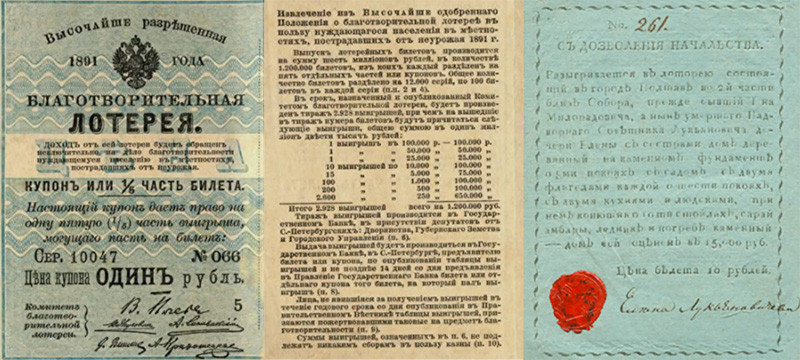 Высочайше разрѣшенная
1891 ГОДА
БЛАГОТВОРИТЕЛЬНАЯ
ЛОТЕРЕЯ.
ДОХОДЪ отъ сей лотереи будетъ обращенъ
исключительно на дѣло благотворительности
нуждающемуся населенію въ мѣстностяхъ,
пострадавшихъ отъ неурожая.
КУПОНЪ ИЛИ 1/5 ЧАСТЬ БИЛЕТА.
Настоящій купонъ даетъ право на
одну пятую (1/5) часть выигрыша,
могущаго пасть на билетъ:
СЕР. 10047 № 066
Цѣна купона ОДИНЪ рубль.
Комитетъ
благотво-
рительной
лотереи.
5
Извлеченіе изъ ВЫСОЧАЙШЕ одобреннаго
Положенія о благотворительной лотереѣ въ
пользу нуждающагося населенія въ мѣстно-
стяхъ, пострадавшихъ отъ неурожая 1891 г.
Выпускъ лотерейныхъ билетовъ производится
на сумму шесть милліоновъ рублей, въ количествѣ
1.200.000 билетовъ, изъ коихъ каждый раздѣленъ на
пять отдѣльныхъ частей или купоновъ. Общее коли-
чество билетовъ раздѣлено на 12.000 серій, по 100 би-
летовъ въ каждой серіи (п.п. 2 и 4).
Въ срокъ, назначенный и опубликованный Коми-
тетомъ благотворительной лотереи, будетъ произве-
денъ тиражъ 2.928 выигрышей, при чемъ на вышедшіе
въ тиражъ нумера билетовъ будутъ причитаться слѣ-
дующіе выигрыши, общею суммою въ одинъ мил-
ліонъ двѣсти тысячъ рублей:
1 выигрышъ въ 100.000 р. — 100.000 р.
1 „ „ 50.000 „ 50.000 „
1 „ „ 25.000 „ 25.000 „
10 выигрышей по 10.000 „ 100.000 „
15 „ „ 5.000 „ 75.000 „
100 „ „ 1.000 „ 100.000 „
200 „ „ 500 „ 100.000 „
2.600 „ „ 250 „ 650.000 „
Итого 2.928 выигрышей всего на 1.200.000 руб.
Тиражъ выигрышей производится въ Государ-
ственномъ Банкѣ, въ присутствіи депутатовъ отъ
С.-Петербургскихъ: Дворянства, Губернскаго Земства
и Городскаго Управленія (п. 6).
Выдача выигрышей будетъ производиться въ Госу-
дарственномъ Банкѣ, въ С.-Петербургѣ, предъявителю
билета или купона, по опубликованіи таблицы выи-
грышей и не позднѣе 14 дней со дня предъявленія
въ Правленіи Государственнаго Банка билета или от-
дѣльнаго купона того билета, на который палъ вы-
игрышъ (п. 8).
Лица, не явившіяся за полученіемъ выигрышей въ
теченіе годоваго срока со дня опубликованія въ Пра-
вительственномъ Вѣстникѣ таблицы выигрышей, при-
знаются пожертвовавшими таковые на предметъ бла-
готворительности (п. 9).
Суммы выигрышей, означенныхъ въ п. 6, не подле-
жатъ никакимъ сборамъ въ пользу казны (п. 10).
No. 261.
СЪ ДОЗВОЛЕНІЯ НАЧАЛЬСТВА.
Разыгрывается въ лотерею состоя-
щій въ городѣ Полтавѣ во 2й части
близь Собора, прежде бывшій Г-на
Милорадовича, а нынѣ умершаго Над-
ворнаго Совѣтника Лукьяновича до-
чери Елены съ сестрами домъ дере-
вянный на каменномъ фундаментѣ
о ми покояхъ съ садомъ, съ двумя
флигелями каждой о шести покояхъ,
съ двумя кухнями и людскими, при
немъ конюшня о ти стойлахъ, сарай
амбары, ледникъ и погребъ каменный
— домъ сей оцѣненъ въ 15,000 руб.
Цѣна билета 10 рублей.
Елена Лукьяновичева